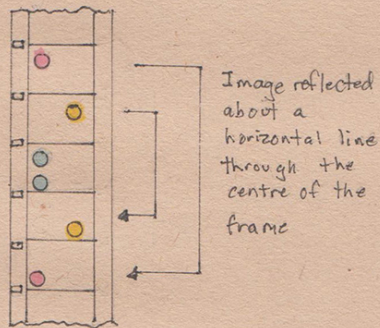 Image reflected
about a
horizontal line
through the
centre of the
frame